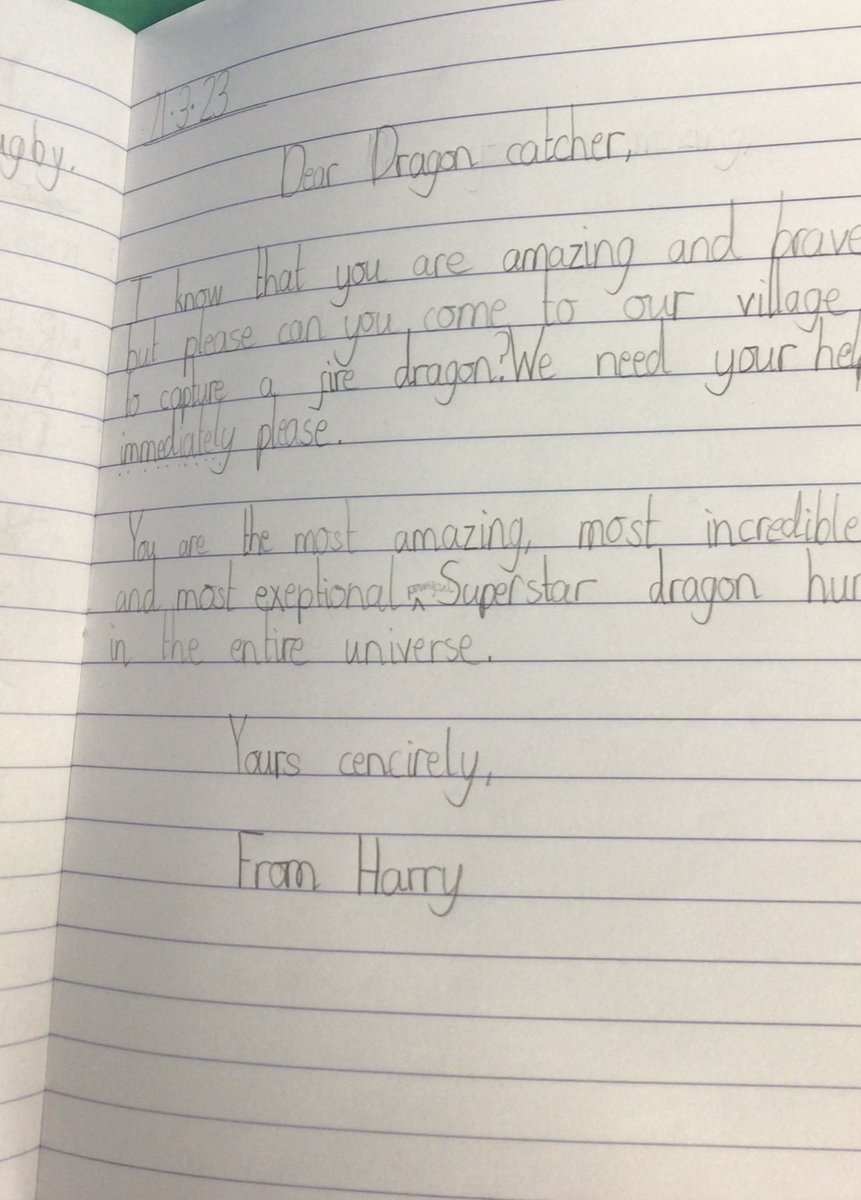 21.3.23
ugby.
Dear Dragon catcher,
I know that you are amazing and brave
but please can you come to our village
to capture a fire dragon? We need your hel
immediately please.
You are the most amazing, most incredible
and most exeptional Superstar dragon hun
in the entire universe.
Yours cencirely,
From Harry